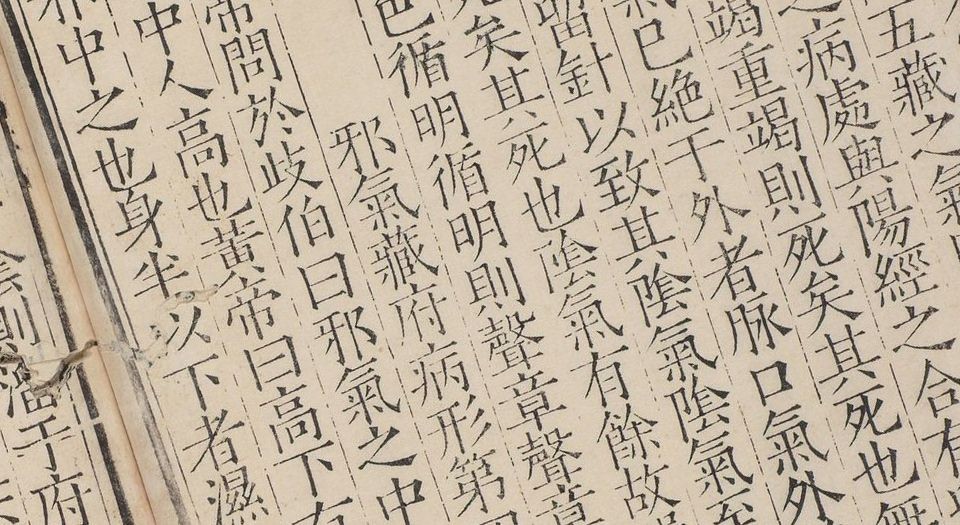 五藏之氣
之病處與陽經之合有
竭重竭則死矣其死也無
氣已絕于外者脉口氣外
留針以致其陰氣陰氣至
死矣其死也陰氣有餘故
色循明循明則聲章聲章
邪氣藏府病形第
帝問於歧伯曰邪氣之中
中人高也黃帝曰高下有
邪中之也身半以下者濕
陰則溜于府